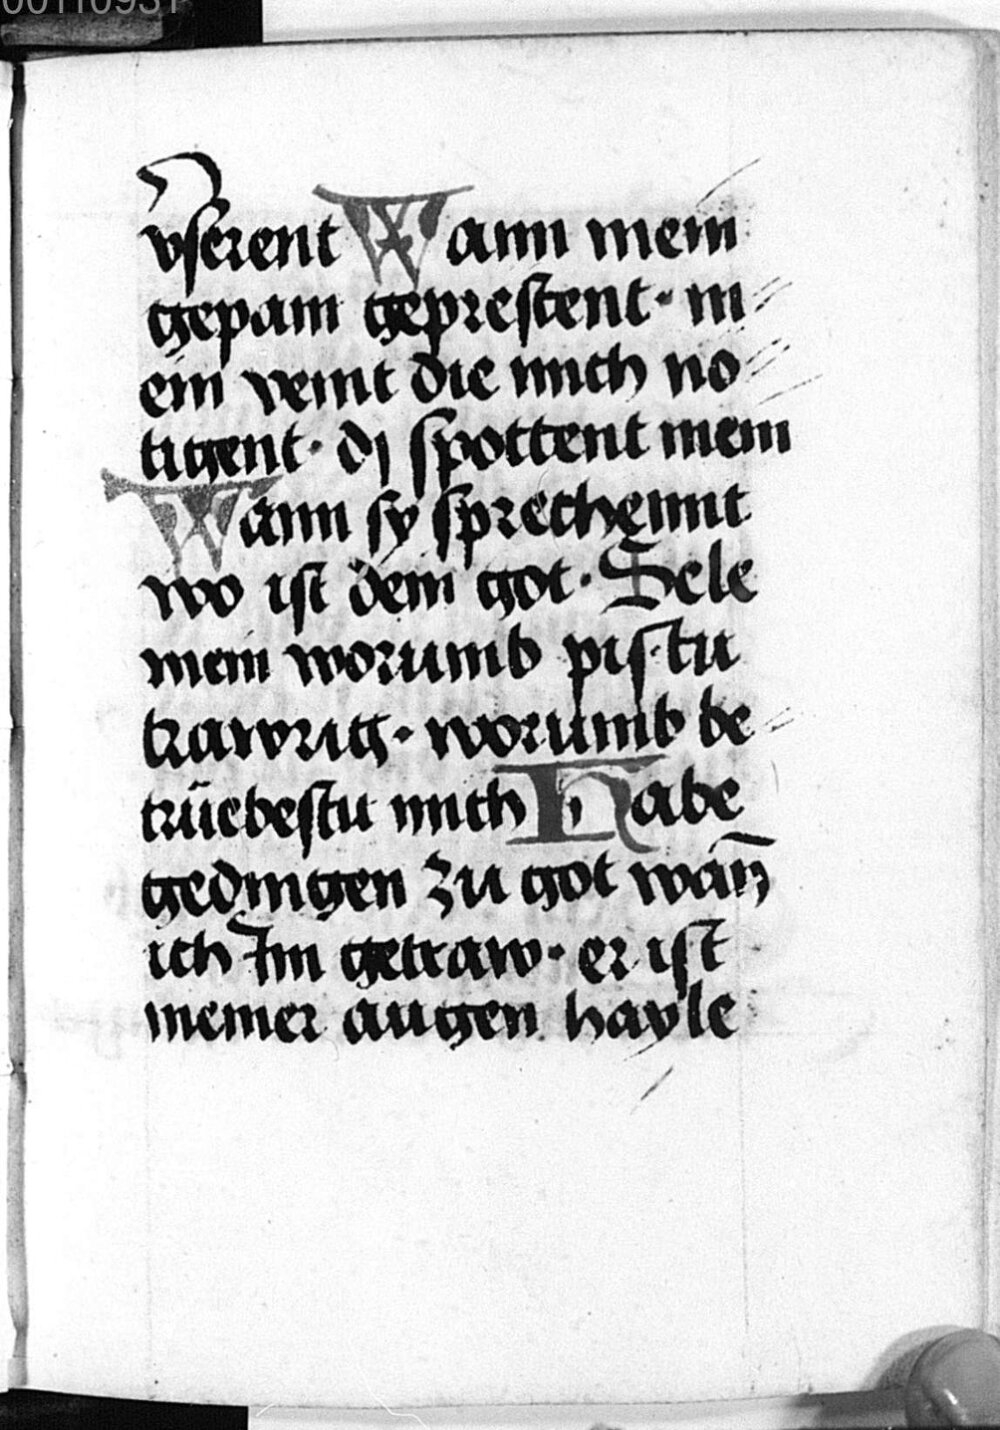 00110931
vserent Wann mein
gepain geprestent · m
ein veint die mich no
tigent · dj spottent mein
Wann sy sprechennt
wo ist dein got · Sele
mein worumb pis tu
trawrig · worumb be
trüebestu mich Habe
gedingen zu got wan̄
ich Im getraw · er ist
meiner augen hayle